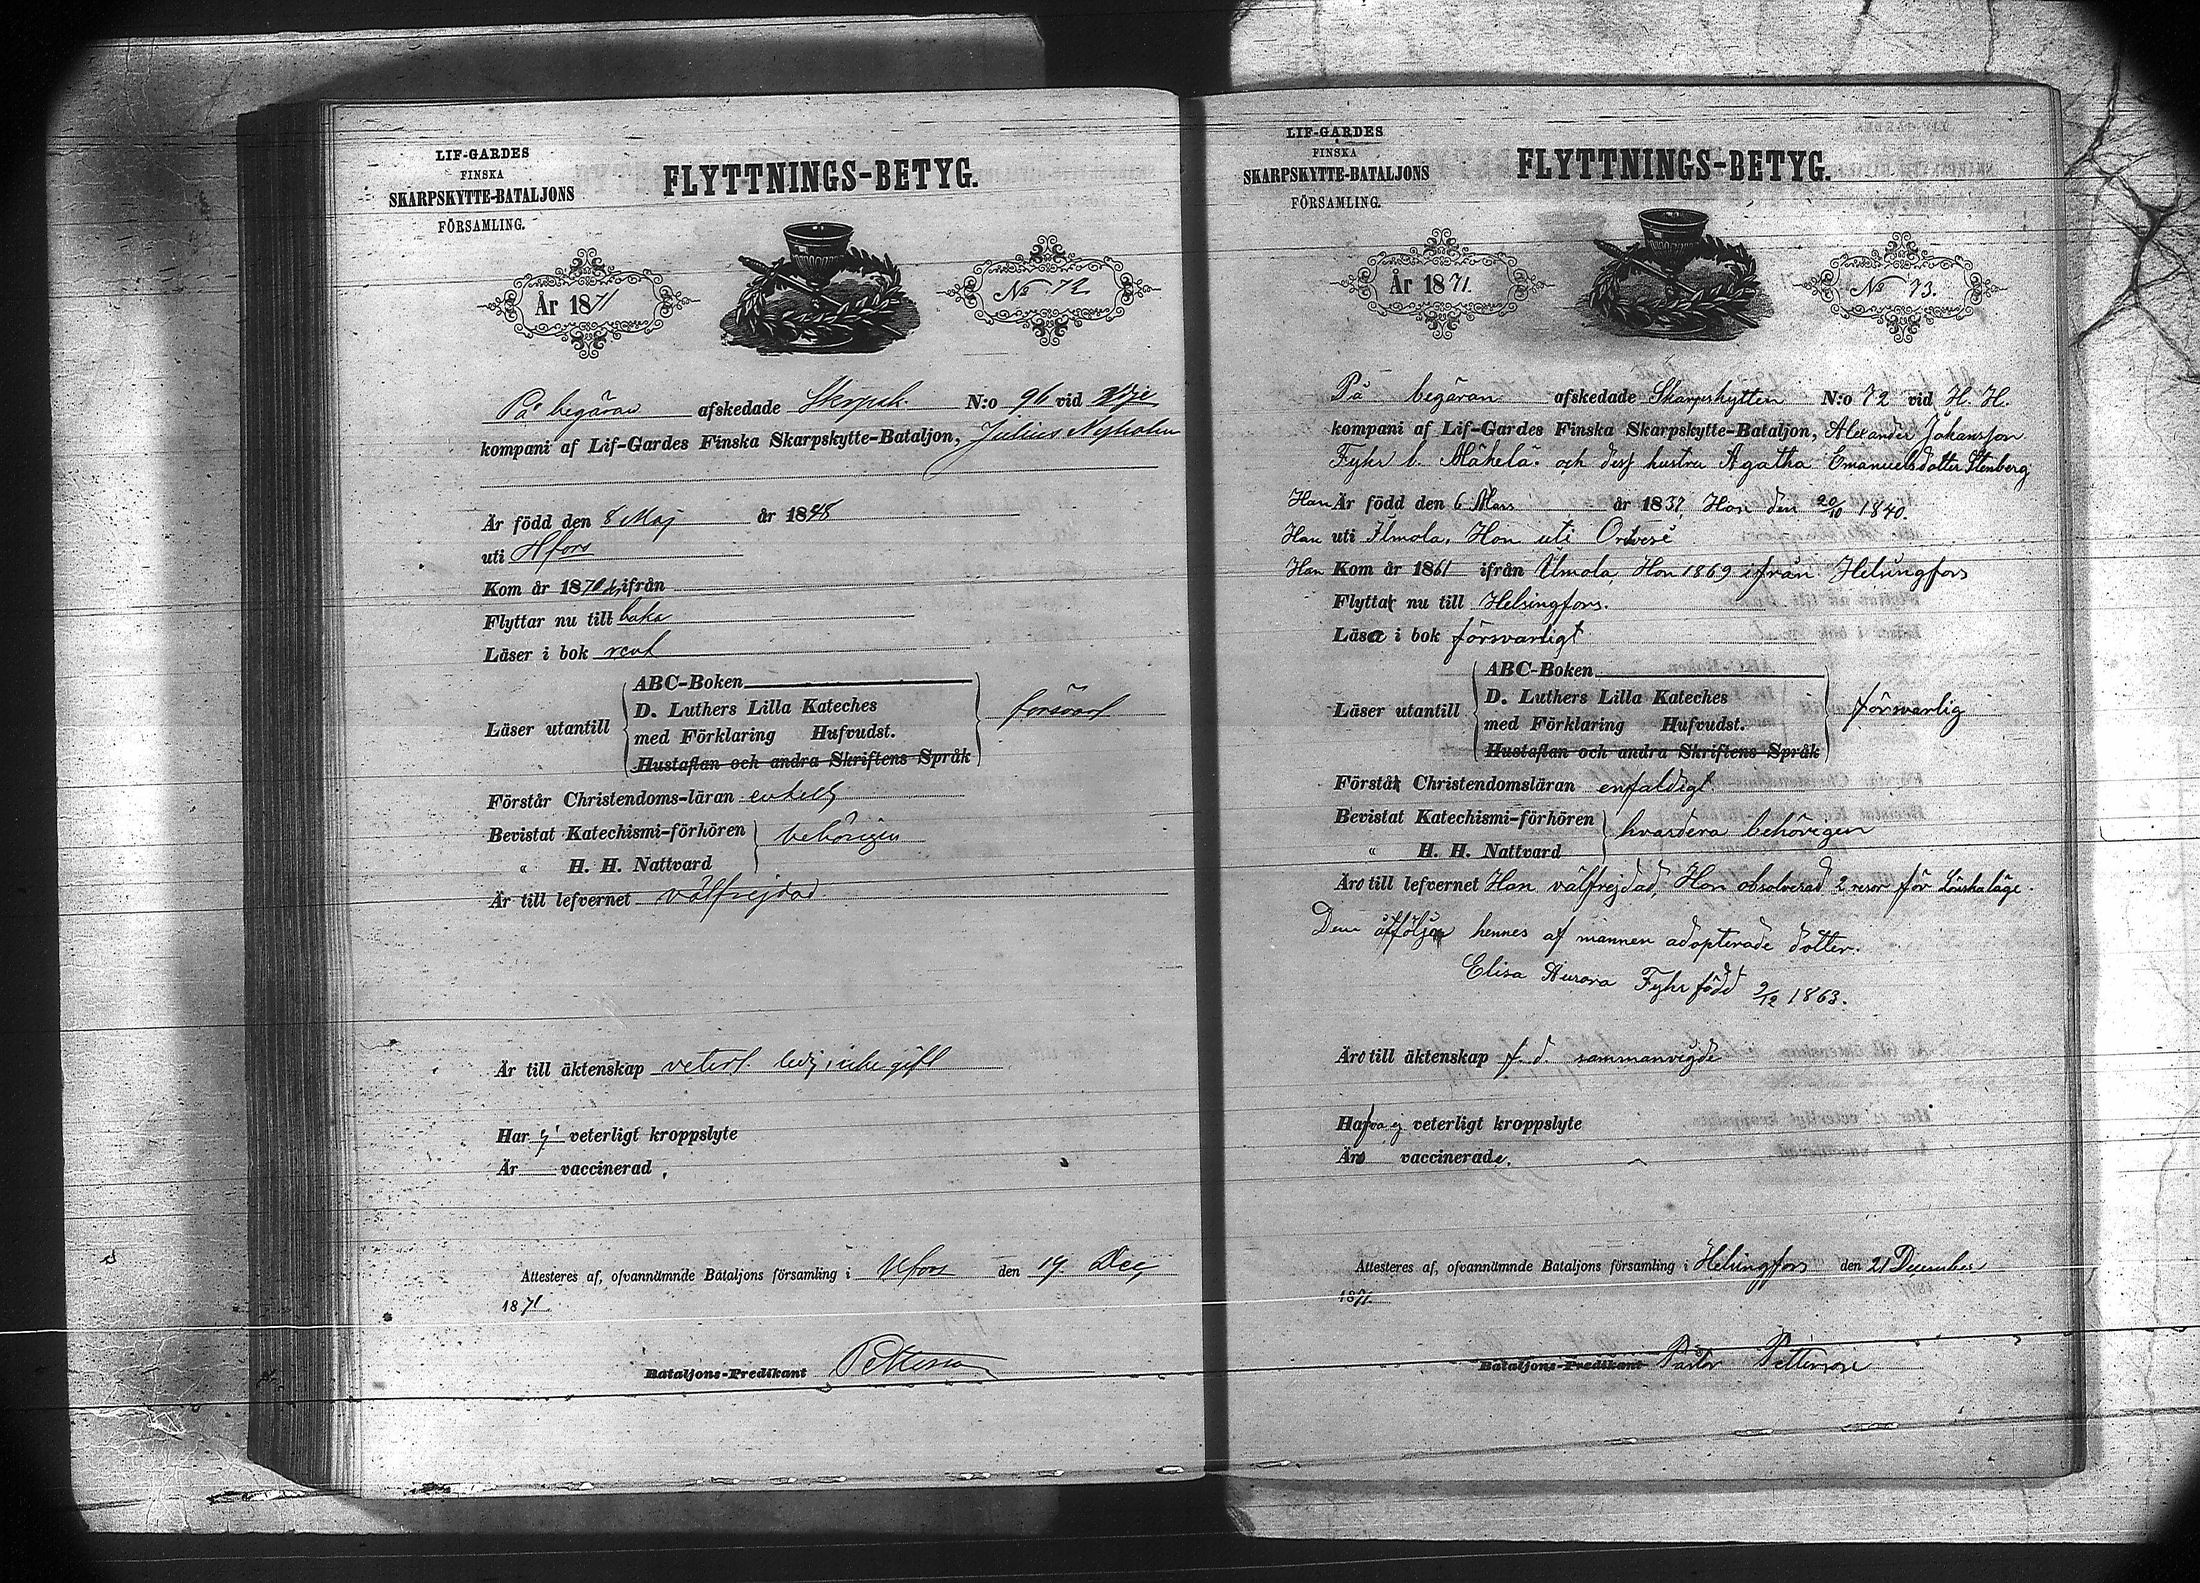 LIF-GARDES
FINSKA
SKARPSKYTTE-BATALJONS
FÖRSAMLING.
FLYTTNINGS-BETYG.
År 1871
No 72
På begäran afskedade Skrpsk. N:o 96 vid
kompani af Lif-Gardes Finska Skarpskytte-Bataljon, Julius Nyholm
Är född den 8 Maj år 1848
uti Hfors
Kom år 1870 ifrån
Flyttar nu till baka
Läser i bok rent
ABC-Boken
D. Luthers Lilla Kateches
Läser utantill
med Förklaring Hufvudst.
försvarl
Hustaflan och andra Skriftens Språk
Förstår Christendoms-läran enkelt
Bevistat Katechismi-förhören
behörigen
" H. H. Nattvard
Är till lefvernet välfrejdad
Är till äktenskap veterl. ledig, icke gift
Har ej veterligt kroppslyte
Är vaccinerad,
Attesteres af, ofvannämnde Bataljons församling i Hfors den 19 Dec,
1871
Bataljons-Predikant Petterson
LIF-GARDES
FINSKA
SKARPSKYTTE-BATALJONS
FÖRSAMLING.
FLYTTNINGS-BETYG.
År 1871.
No 73.
På begäran afskedade Skarpskytten N:o 72 vid H. H.
kompani af Lif-Gardes Finska Skarpskytte-Bataljon, Alexander Johansson
Fyhr l. Mäkelä och dess hustru Agatha Emanuelsdotter Stenberg
Han Är född den 6 Mars år 1837, Hon den 20/10 1840.
Han uti Ilmola, Hon uti
Han Kom år 1861 ifrån Ilmola, Hon 1869 ifrån Helsingfors
Flytta nu till Helsingfors.
Läsa i bok försvarligt
ABC-Boken
D. Luthers Lilla Kateches
Läser utantill
med Förklaring Hufvudst.
försvarlig
Hustaflan och andra Skriftens Språk
Förstå Christendomsläran enfaldigt
Bevistat Katechismi-förhören
hvardera behörigen
" H. H. Nattvard
Äro till lefvernet Han välfrejdad, Hon absolverad 2 resor för Lönskaläge.
Dem åtföljer hennes af mannen adopterade dotter.
Elisa Aurora Fyhr född 9/12 1863.
Äro till äktenskap f. d. sammanvigde
Hafva ej veterligt kroppslyte
Äro vaccinerade.
Attesteres af, ofvannämnde Bataljons församling i Helsingfors den 21 December
1871.
Bataljons-Predikant Pastor Petterson